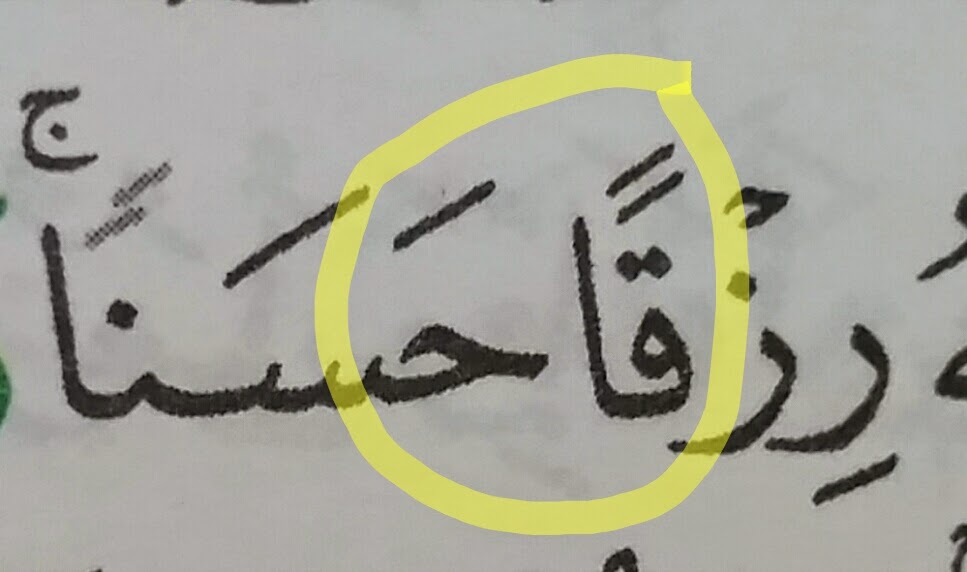 رِزْقًا حَسَنًا ۚ